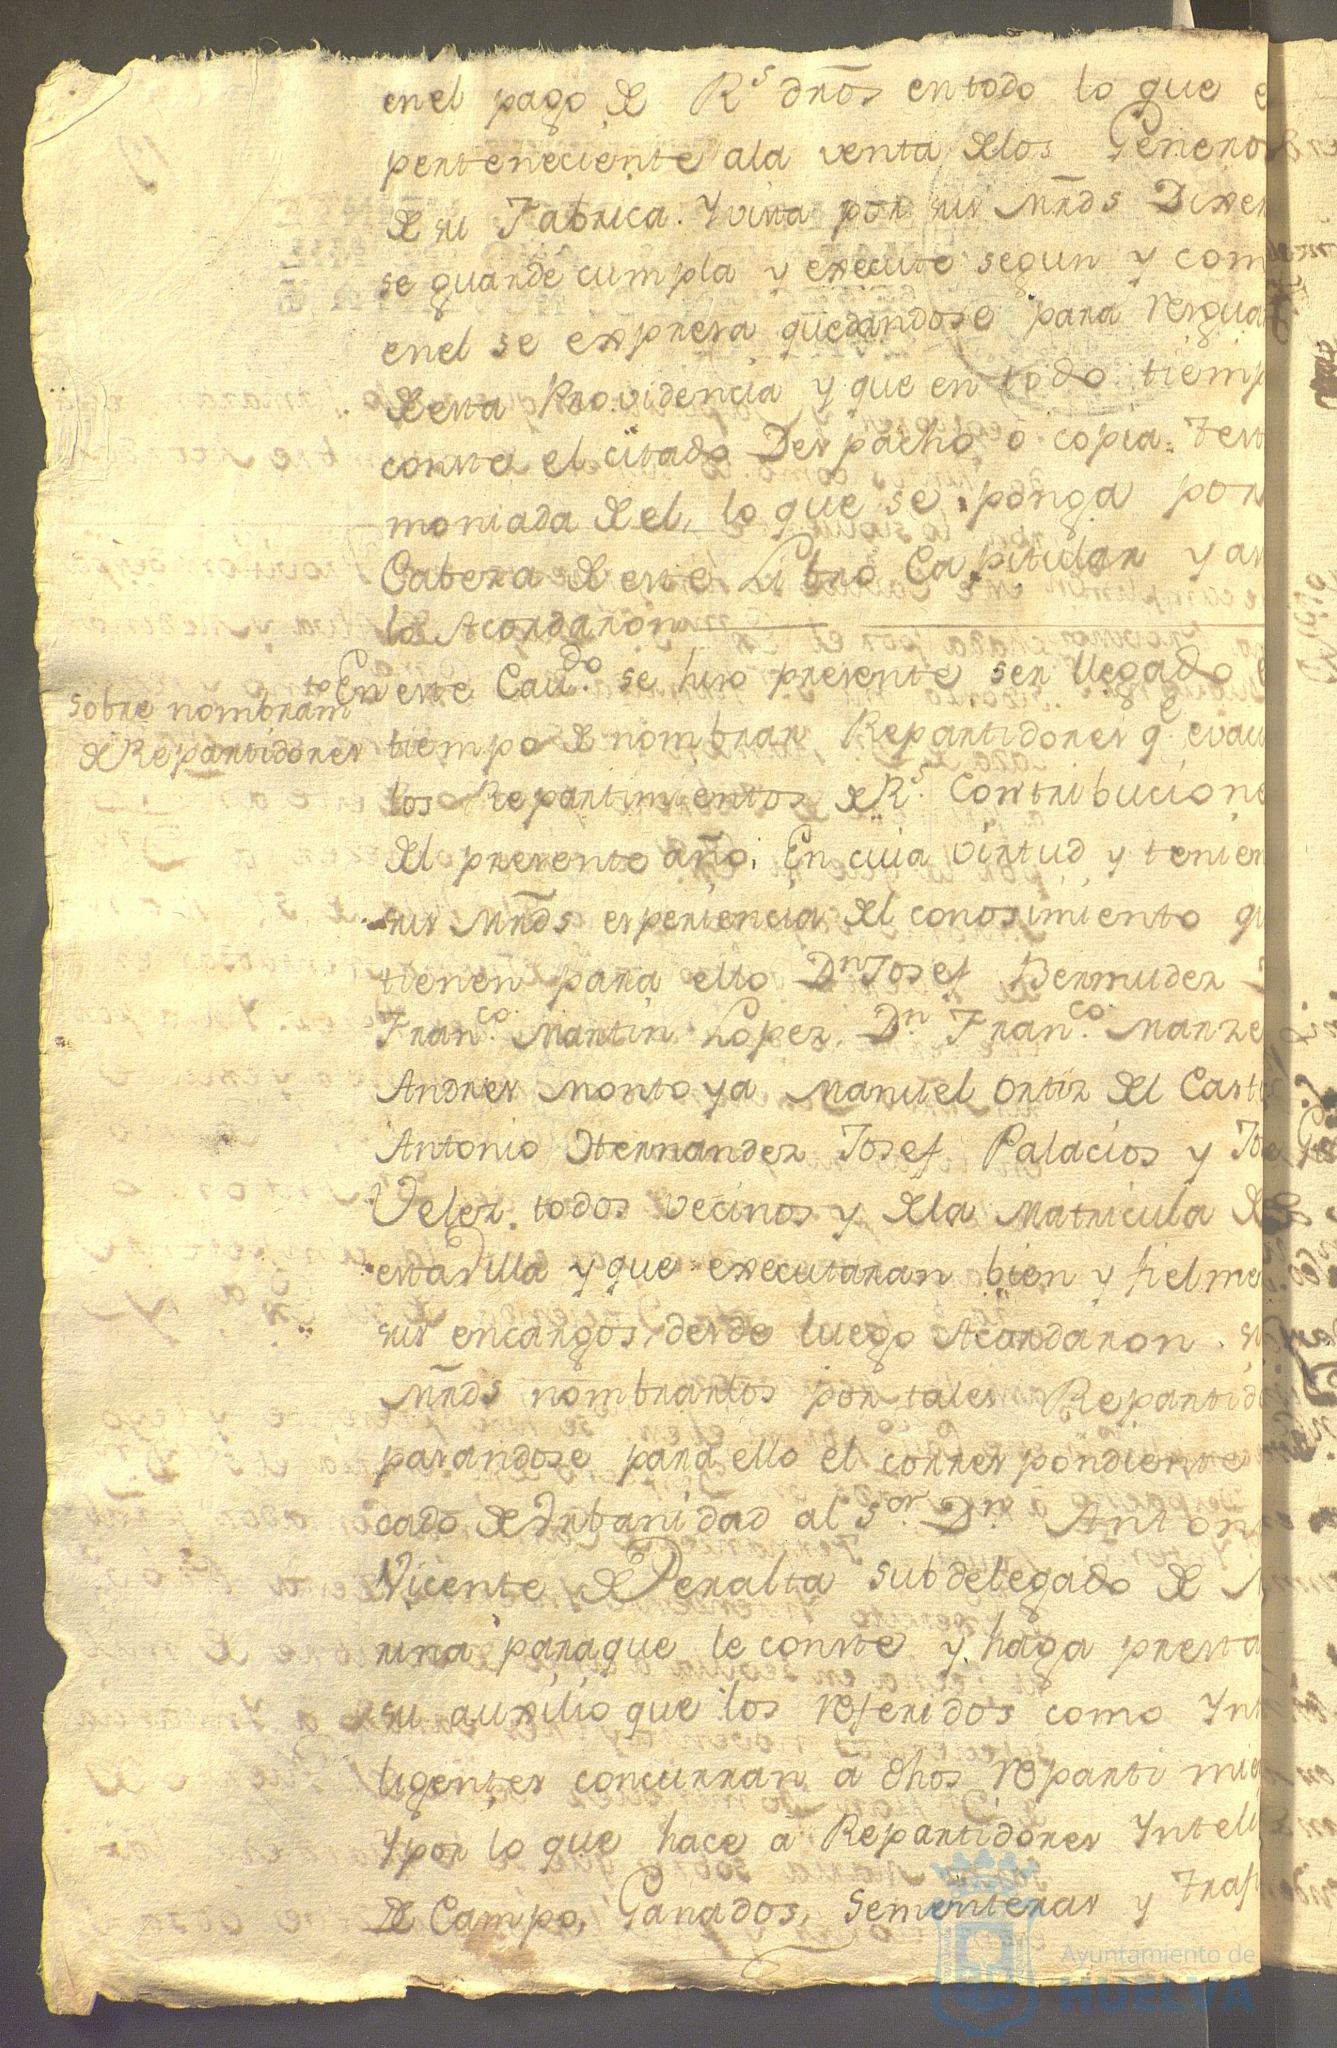 en el pago de R.s dr̃os en todo lo que e
perteneciente ala venta delos Generos
de su Fabrica. Y vista por sus Mr̃ds Dixer
se guarde cumpla y execute segun y com
enel se expresa quedandose para resguar
desta Providencia y que en todo tiemp
conste el citado Despacho ô copia testi
moniada del, lo que se ponga por
Cabeza de este Libro Capitular y asi
lo Acordaron
sobre nombram.to
de Repartidores
En este Cau.do se hizo presente ser llegado e
tiempo de nombrar Repartidores q.e evacu
los Repartimientos de R.s Contribucione
del presente año; En cuia virtud y tenien
sus Mr̃ds esperiencia del conosimiento qu
tienen para ello D.n Josef Bermudez
Fran.co Martin Lopez. D.n Fran.co Marze
Andres Montoya Manuel Ortiz del Casti
Antonio Hernandez Josef Palacios y Jose
Velez. todos vecinos y dela Matricula de
esta Villa y que executaran bien y fielme
sus encargos, desde luego Acordaron su
Mr̃ds nombrarlos por tales Repartido
pasandose para ello el correspondiente
cado de Urbanidad al S.or D.n Antoni
Vicente de Peralta Subdelegado de M
rina paraque le conste y haga presta
su auxilio que los referidos como Ynte
ligentes concurran a dhos repartimie
Y por lo que hace â Repartidores Yntelig
de Campo, Ganados, Sementeras y Trafi
Ayuntamiento de
HUELVA